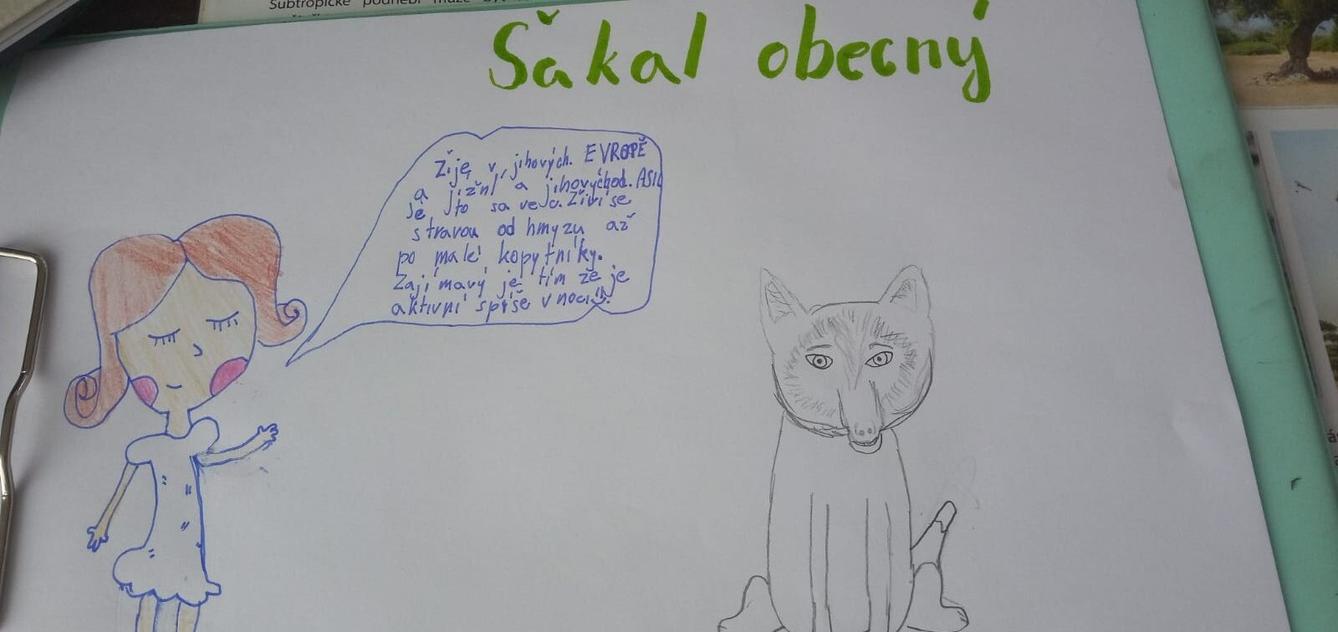 Subtropické podnebí může
Šakal obecný
Žije v jihových. EVROPĚ
a jižní a jihovýchod. ASII
je jto sa vec. Živí se
stravou od hmyzu až
po malé kopytníky.
Zajímavý je tím že je
aktivní spíše v noci